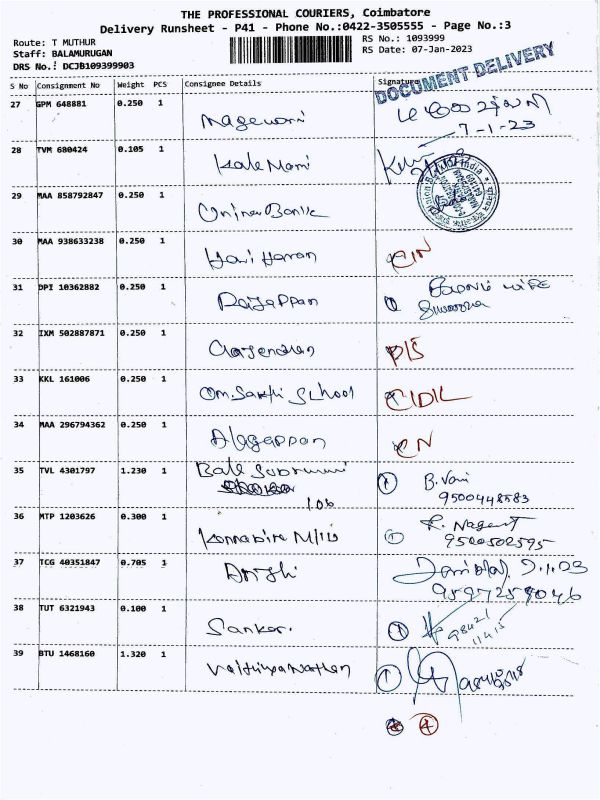 THE PROFESSIONAL COURIERS, Coimbatore
Delivery Runsheet - P41 - Phone No.:0422-3505555 - Page No.:3
Route: T MUTHUR
Staff: BALAMURUGAN
DRS No.: DCJB109399903
RS No.: 1093999
RS Date: 07-Jan-2023
DOCUMENT DELIVERY
S No Consignment No Weight PCS Consignee Details Signature
27 GPM 648881 0.250 1
7-1-23
28 TVM 680424 0.105 1 Kale Mani
29 MAA 858792847 0.250 1
30 MAA 938633238 0.250 1 Hari Haran
31 DPI 10362882 0.250 1 Rajappan
32 IXM 502887871 0.250 1 Gajendran
33 KKL 161006 0.250 1 Om.Sakthi School
34 MAA 296794362 0.250 1 Alagappan
35 TVL 4301797 1.230 1 B. Vani
9500448583
36 MTP 1203626 0.300 1
9500502595
37 TCG 40351847 0.705 1
9597259046
38 TUT 6321943 0.100 1 Sanker.
98421
11415
39 BTU 1468160 1.320 1 Vaithiyanathan